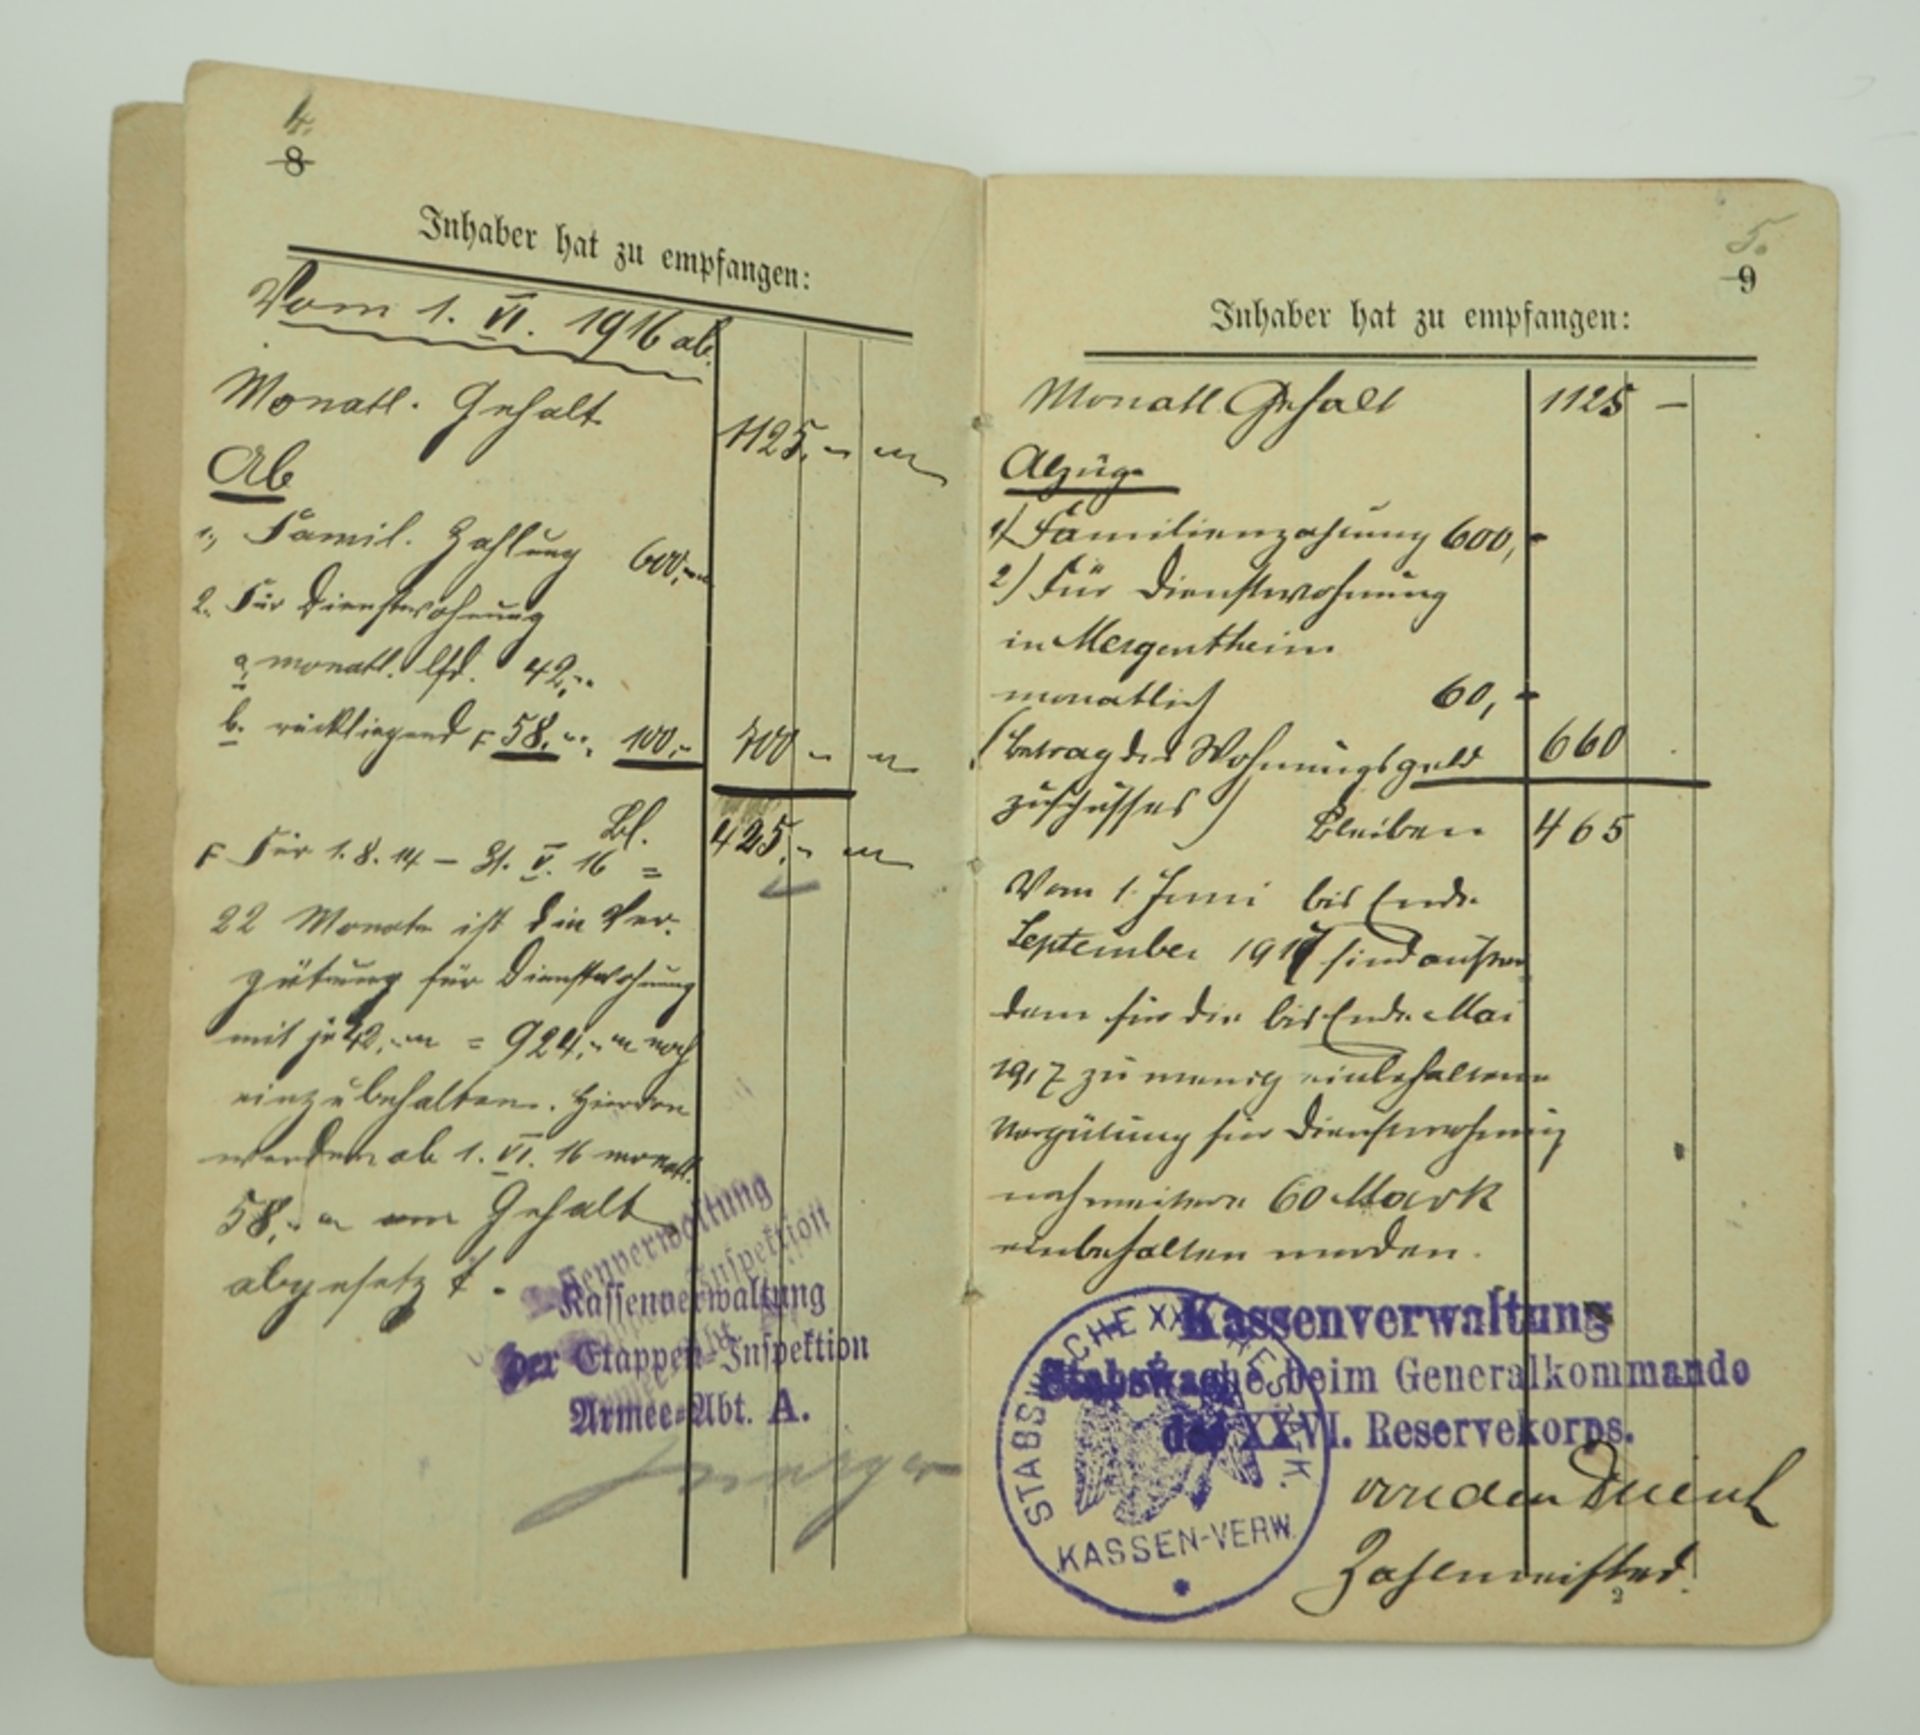 4.
8
Inhaber hat zu empfangen:
Vom 1. VI. 1916 ab.
Monatl. Gehalt 1125,- M
Ab
1., Famil. Zahlung 600,-
2. Für Dienstwohnung
a, monatl. lfd. 42,-
b. rückliegend F 58,- 100,- 700 - M
Bl. 425,- M
F Für 1.8.14 – 31. V. 16 =
22 Monate ist die Ver-
gütung für Dienstwohnung
mit je 42,- M = 924,- M noch
einzubehalten. Hiervon
werden ab 1. VI. 16 monatl.
58,- M am Gehalt
abgesetzt.
Kassenverwaltung
der Etappen-Inspektion
Armee-Abt. A.
5.
9
Inhaber hat zu empfangen:
Monatl Gehalt 1125 –
Abzüge
1) Familienzahlung 600,-
2) Für Dienstwohnung
in Mergentheim
monatlich 60,-
(Betrag des Wohnungsgeld 660
zuschusses) Bleiben 465
Vom 1. Juni bis Ende
September 1917 sind außer
dem für die bis Ende Mai
1917 zu wenig einbehaltene
Vergütung für Dienstwohnung
noch weitere 60 Mark
einbehalten worden.
Kassenverwaltung
Stabswache beim Generalkommando
des XXVI. Reservekorps.
STABSWACHE XXVI. RES. K.
KASSEN-VERW.
Zahlmeister.
2